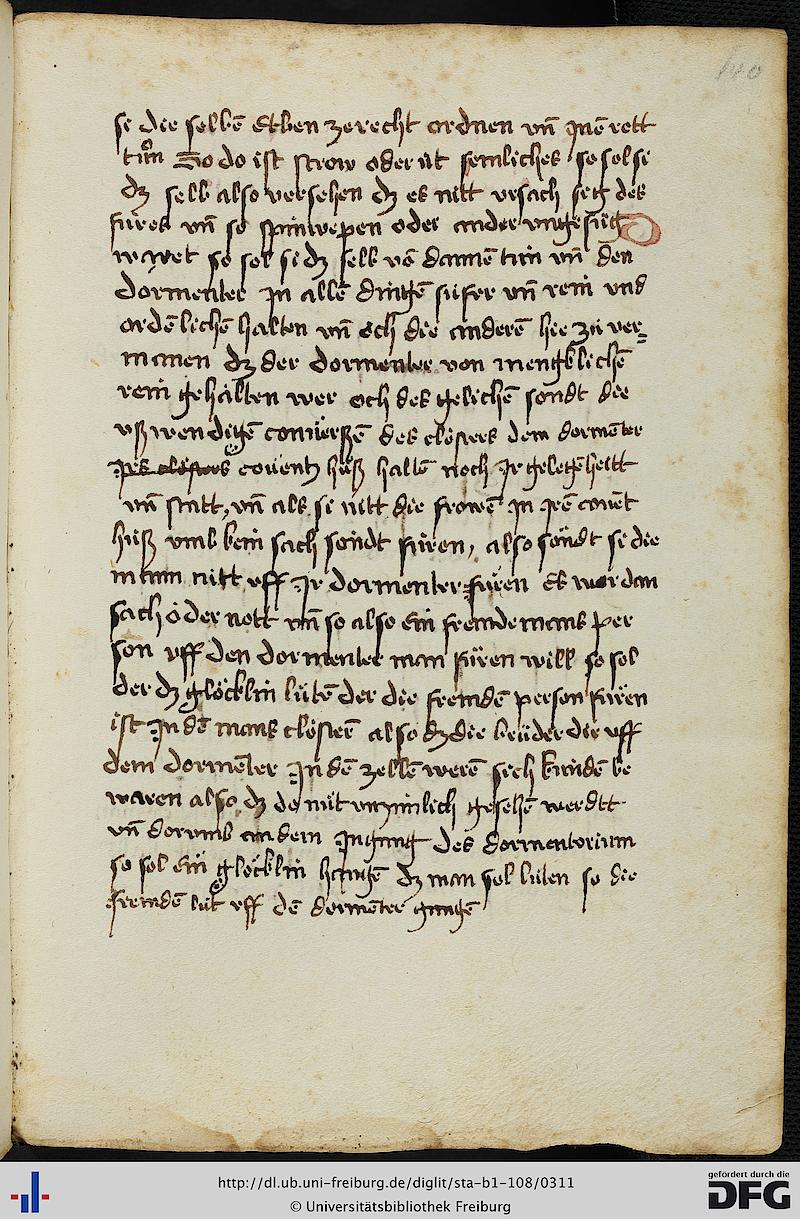 140
si die selbē Etben zerecht ordnen vn̄ Jnē rett
tūn So do ist strow oder üt semliches so sol si
dz selb also versehen dz es nitt vrsach sig des
fúres vn̄ so spinwepen oder ander vngefüg
so sol si dz selb vō dannē tün vn̄ den
dormenter Jn allē dingē sufer vn̄ rein vnd
ordēlichē halten vn̄ och die anderē hie zü ver=
manen dz der dormenter von mengklichē
rein gehalten wer och des gelichē sondt die
vßwendigē conuerßē des closters dem dormēter
Jres closters couentz huß haltē noch Jr gelegēheitt
vn̄ statt, vn̄ als si nitt die frowē Jn Jrē couēt
huß vmb kein sach sondt füren, also söndt si die
man nitt vff Jr dormenter füren Es wer dan
sach oder nott vn̄ so also ein fremde mans per
son vff den dormenter man füren will so sol
der dz glöcklin lütē der die fremdē person füren
ist Jn dē mans clösterē also dz die brüder die vff
dem dormēter Jn dē zellē werē sich kundē be
waren also dz do nüt vnzimlich gesehē werdtt
vn̄ dorumb an dem Jngang des dormentorium
so sol ein glöcklin hangē dz man sol lüten so die
fremdē lüt vff dē dormēter gangē
http://dl.ub.uni-freiburg.de/diglit/sta-b1-108/0311
© Universitätsbibliothek Freiburg
gefördert durch die
DFG